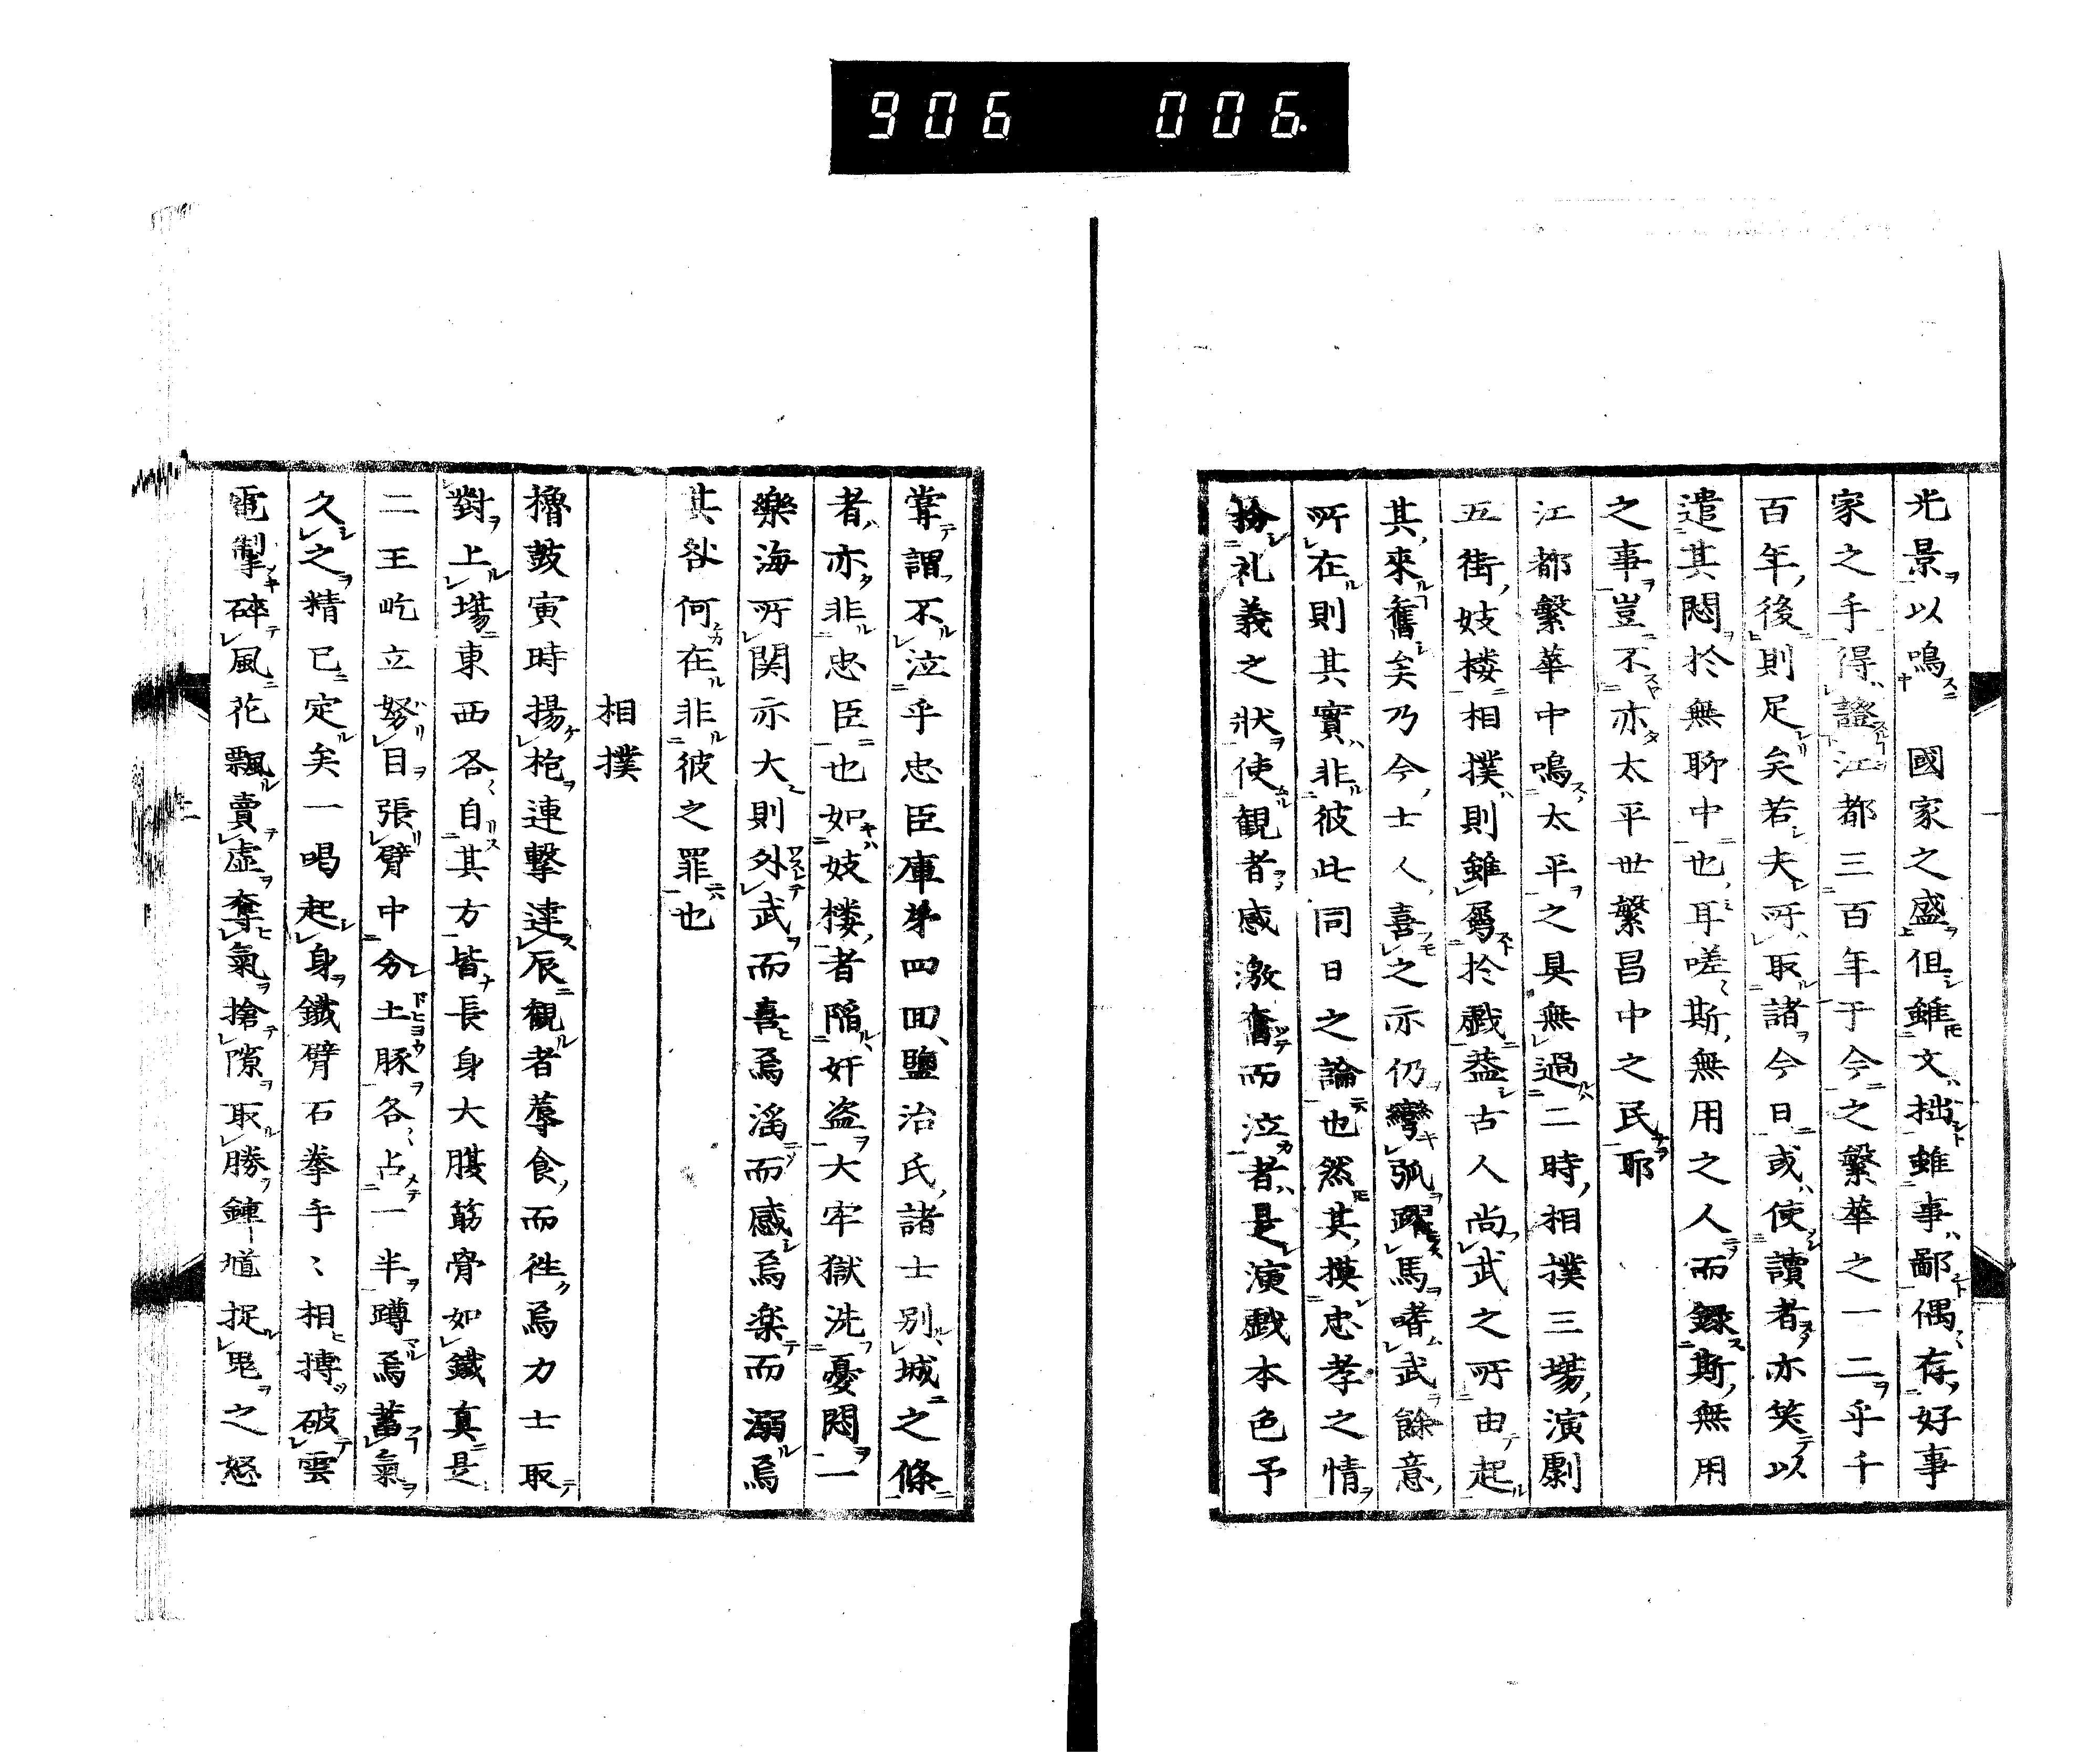 906 006.
光景以鳴 國家之盛但雖文拙雖事鄙偶存好事
家之手得證江都三百年于今之繁華之一二乎千
百年後則足矣若夫所取諸今日或使讀者亦笑以
遣其悶於無聊中也耳嗟〻斯無用之人而録斯無用
之事豈不亦太平世繁昌中之民耶
江都繁華中鳴太平之具無過二時相撲三場演劇
五街妓楼相撲則雖爲於戯蓋古人尚武之所由起
其來舊矣乃今士人喜之亦仍彎弧躍馬嗜武餘意
所在則其實非彼此同日之論也然其摸忠孝之情
扮礼義之状使観者感激奮而泣者是演戯本色予
嘗謂不泣乎忠臣庫第四回鹽冶氏諸士別城之條
者亦非忠臣也如妓楼者陥奸盗大牢獄洗憂悶一
樂海所関亦大則外武而喜焉滛而感焉楽而溺焉
其咎何在非彼之罪也
相撲
擼鼓寅時揚枹連撃達辰観者蓐食而徃焉力士取
對上塲東西各自其方皆長身大腹筋骨如鐵真是
二王屹立努目張臂中分土豚各〻占一半蹲焉蓄氣
久之精已定矣一喝起身鐵臂石拳手〻相搏破雲
電掣碎風花飄賣虚奪氣搶隙取勝鍾馗捉鬼之怒